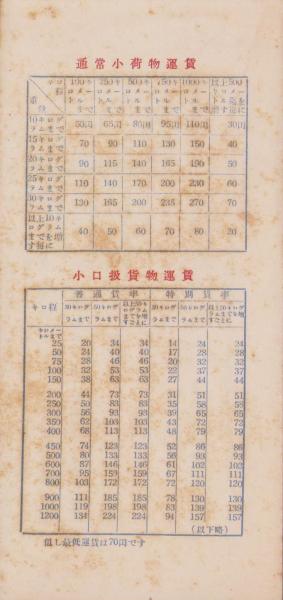 通常小荷物運賃
キロ程 重量 100キロメートルまで 250キロメートルまで 500キロメートルまで 750キロメートルまで 1000キロメートルまで 以上500キロメートルまでを増すごとに
10キログラムまで 50円 65円 85円 95円 110円 30円
15キログラムまで 70 90 110 130 150 40
20キログラムまで 90 115 140 165 190 50
25キログラムまで 110 140 170 200 230 60
30キログラムまで 130 165 200 235 270 70
以上10キログラムまでを増す毎に 40 50 60 70 80 20
小口扱貨物運賃
キロ程 普通貨率 特別貨率
30キログラムまで 50キログラムまで 以上50キログラムまでを増すごとに 30キログラムまで 50キログラムまで 以上50キログラムまでを増すごとに
キロメートルまで
25 20 34 34 14 24 24
50 24 40 40 17 28 28
75 28 46 46 20 32 32
100 32 53 53 22 37 37
150 38 63 63 27 44 44
200 44 73 73 31 51 51
250 50 83 83 35 58 58
300 56 93 93 39 65 65
350 62 103 103 43 72 72
400 68 113 113 48 79 79
450 74 123 123 52 86 86
500 80 133 133 56 93 93
600 87 146 146 61 102 102
700 95 159 159 67 111 111
800 103 172 172 72 120 120
900 111 185 185 78 130 130
1000 119 198 198 83 139 139
1200 134 224 224 94 157 157
(以下略)
但し最低運賃は70円です